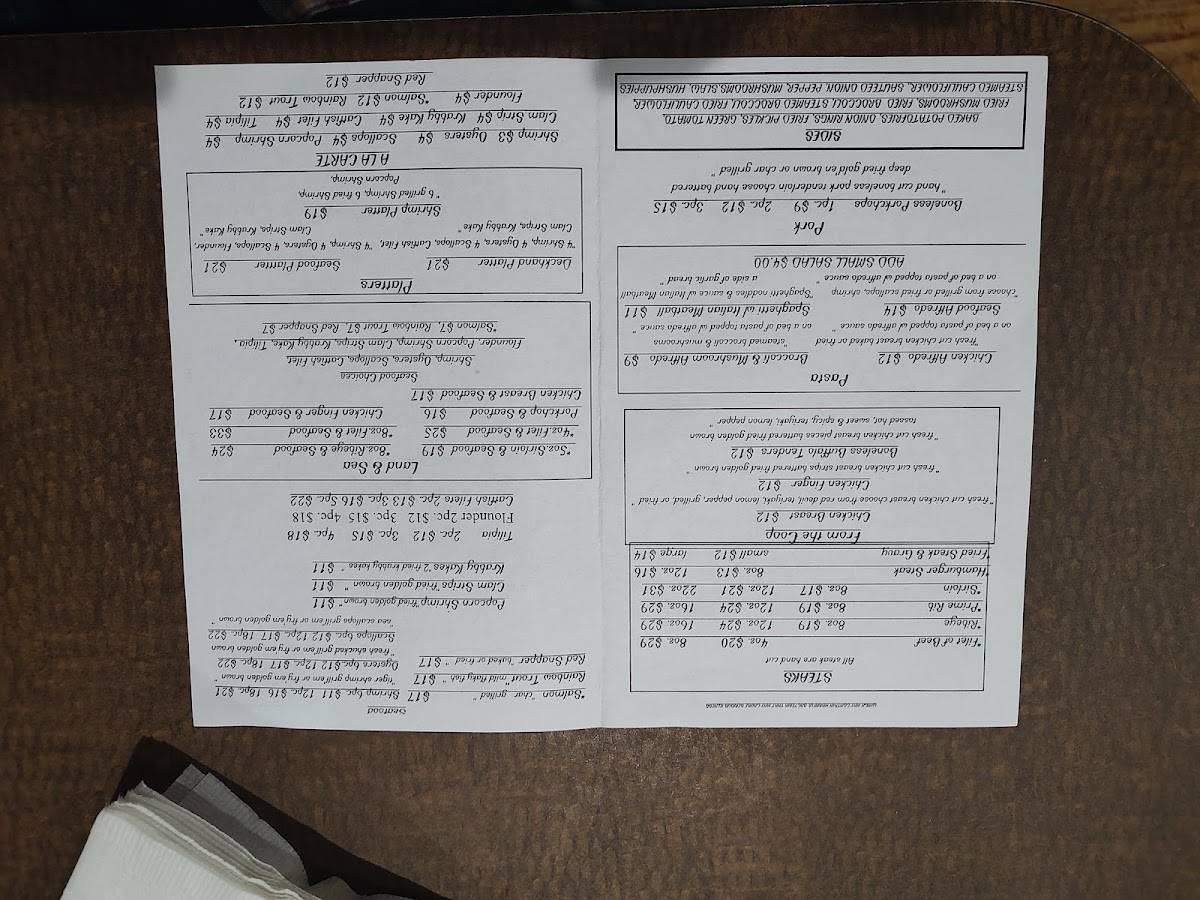 STEAKS
All steak are hand cut
*Filet of Beef 4oz. $20 8oz. $29
*Ribeye 8oz. $19 12oz. $24 16oz. $29
*Prime Rib 8oz. $19 12oz. $24 16oz. $29
*Sirloin 8oz. $17 12oz. $21 22oz. $31
*Hamburger Steak 8oz. $13 12oz. $16
*Fried Steak & Gravy small $12 large $14
From the Coop
Chicken Breast $12
"fresh cut chicken breast choose from red devil, teriyaki, lemon pepper, grilled, or fried "
Chicken Finger $12
"fresh cut chicken breast strips battered fried golden brown "
Boneless Buffalo Tenders $12
"fresh cut chicken breast pieces battered fried golden brown
tossed hot, sweet & spicy, teriyaki, lemon pepper "
Pasta
Chicken Alfredo $12 Broccoli & Mushroom Alfredo $9
"fresh cut chicken breast baked or fried "steamed broccoli & mushrooms
on a bed of pasta topped w/ alfredo sauce " on a bed of pasta topped w/ alfredo sauce "
Seafood Alfredo $14 Spaghetti w/ Italian Meatball $11
"choose from grilled or fried scallops, shrimp "Spaghetti noddles & sauce w/ Italian Meatball
on a bed of pasta topped w/ alfredo sauce " a side of garlic bread "
ADD SMALL SALAD $4.00
Pork
Boneless Porkchops 1pc. $9 2pc. $12 3pc. $15
"hand cut boneless pork tenderloin choose hand battered
deep fried golden brown or char grilled "
SIDES
BAKED POTATOFRIES, ONION RINGS, FRIED PICKLES, GREEN TOMATO,
FRIED MUSHROOMS, FRIED BROCCOLI STEAMED BROCCOLI, FRIED CAULIFLOWER
STEAMED CAULIFLOWER, SAUTEED ONION, PEPPER, MUSHROOMS, SLAW, HUSHPUPPIES
Seafood
*Salmon "char grilled " $17 Shrimp 6pc. $11 12pc. $16 18pc. $21
"tiger shrimp grill'em or fry em golden brown "
Rainbow Trout "mild flaky fish " $17 Oysters 6pc. $12 12pc. $17 18pc. $22
"fresh shucked grill'em or fry em golden brown
Red Snapper "baked or fried " $17 Scallops 6pc. $12 12pc. $17 18pc. $22
"sea scallops grill'em or fry em golden brown "
Popcorn Shrimp "fried golden brown " $11
Clam Strips "fried golden brown " $11
Krabby Kakes "2 fried krabby kakes " $11
Tilpia 2pc. $12 3pc. $15 4pc. $18
Flounder 2pc. $12 3pc. $15 4pc. $18
Catfish Filets 2pc $13 3pc $16 5pc. $22
Land & Sea
*5oz. Sirloin & Seafood $19 *8oz. Ribeye & Seafood $24
*4oz. Filet & Seafood $25 *8oz. Filet & Seafood $33
Porkchop & Seafood $16 Chicken Finger & Seafood $17
Chicken Breast & Seafood $17
Seafood Choices
Shrimp, Oysters, Scallops, Catfish Filet,
Flounder, Popcorn Shrimp, Clam Strips, Krabby Kake, Tilpia,
*Salmon $7, Rainbow Trout $7, Red Snapper $7
Platters
Deckhand Platter $21 Seafood Plattter $21
"4 Shrimp, 4 Oysters, 4 Scallops, Catfish Filet, "4 Shrimp, 4 Oysters, 4 Scallops, Flounder,
Clam Strips, Krabby Kake" Clam Strips, Krabby Kake"
Shrimp Platter $19
"6 grilled Shrimp, 6 fried Shrimp,
Popcorn Shrimp,
A LA CARTE
Shrimp $3 Oysters $4 Scallops $4 Popcorn Shrimp $4
Clam Strip $4 Krabby Kake $4 Catfish Filet $4 Tilpia $4
Flounder $4 *Salmon $12 Rainbow Trout $12
Red Snapper $12